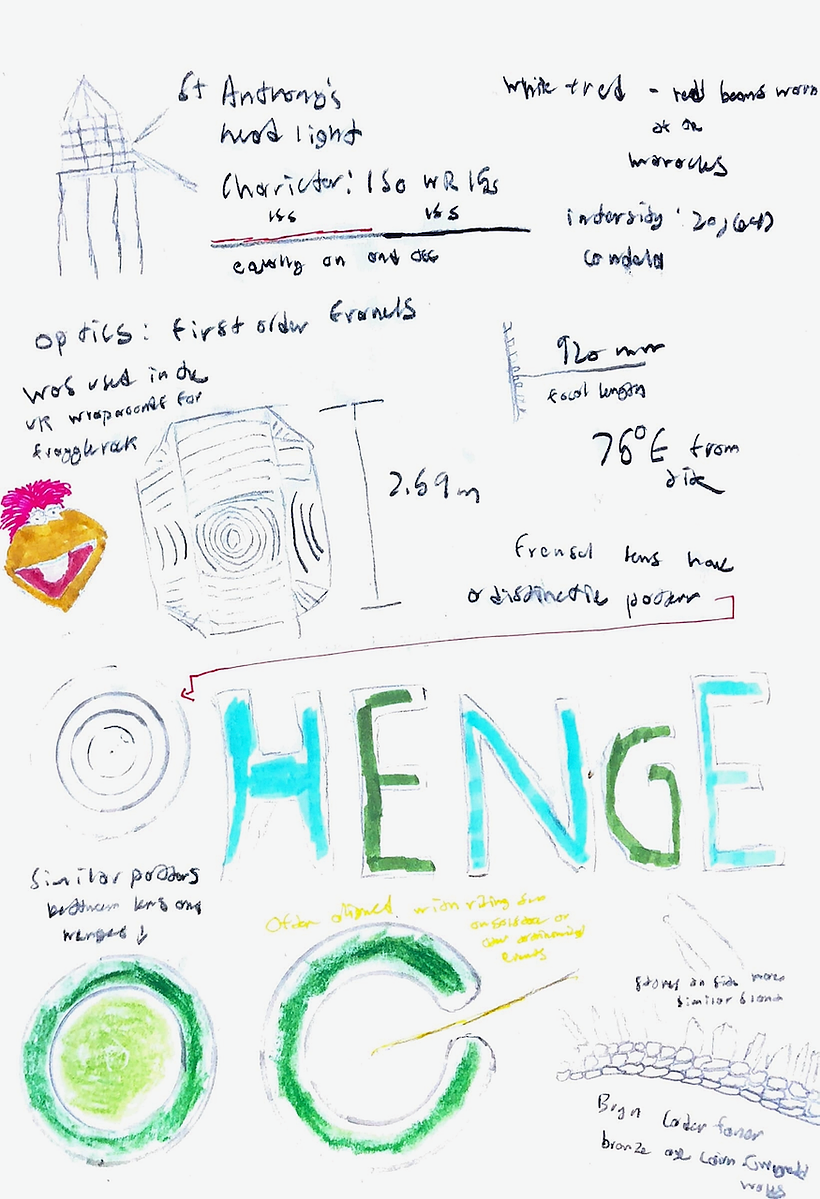 St Anthony's
head light
Charricter: Iso WR 15s
15s
equally on and off
white + red - red beams warn
at the
manacles
intersity:
candela
Optics: first order frenels
was used in the
UK wraparounds for
fragglerock
920 mm
focal length
76°E from
2.59 m
frensel lens have
a distinctive pattern
HENGE
Similar patters
between lens and
henges ↓
Often aligned with rising sun
on solstice or
events
stones on side more
similar stand
Bryn Cader faner
bronze age cairn Gwynedd
wales